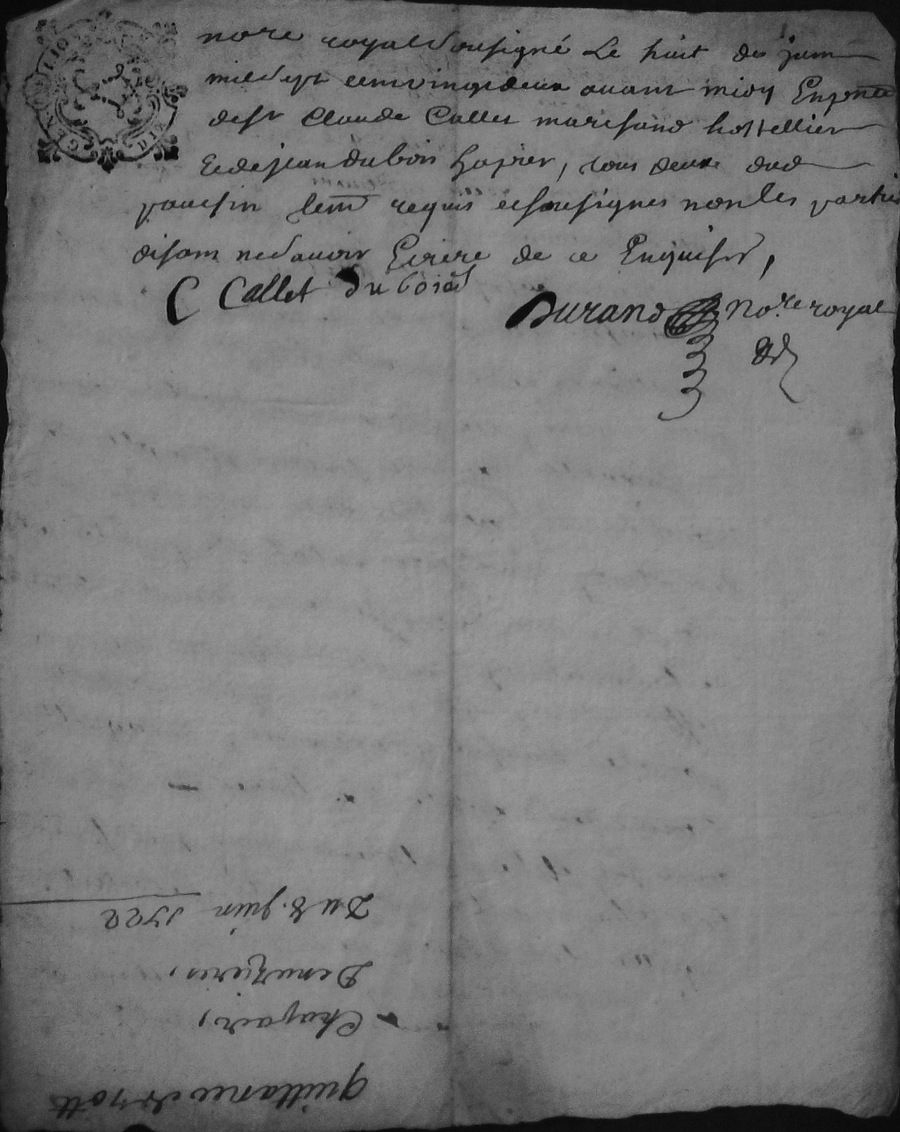 GEN DIO
nore royal Sousigné Le huit du juin
mil sept cent vingt deux avant midy En pnce
de sr Claude Callet marchand hostellier
Et de jean dubois , tous deux dud
requis et sousignes non les parties
disant ne savoir Ecrire de ce Enquises,
C Callet du bois
Durand Nore royal
quittance de
Chapair,
Denuzieres,
Du 8. juin 1722